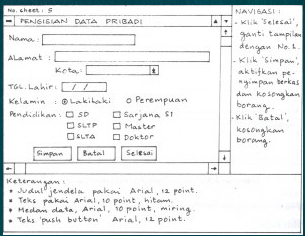 No. sheet : 5
PENGISIAN DATA PRIBADI
Nama :
ALamat :
Kota :
TGL. Lahir : / /
Kelamin : Lakikaki Perempuan
Pendidikan : SD Sarjana S1
SLTP Master
SLTA Doktor
Simpan Batal Selesai
NAVIGASI :
- Klik 'Selesai',
ganti tampilan
dengan No. 1.
- Klik 'Simpan',
aktifkan pe-
nyimpan berkas
dan kosongkan
borang.
- Klik 'Batal',
kosongkan
borang.
Keterangan :
* Judul jendela pakai Arial, 12 point.
* Teks pakai Arial, 10 point, hitam.
* Medan data, Arial, 10 point, miring.
* Teks 'push button' Arial, 12 point.